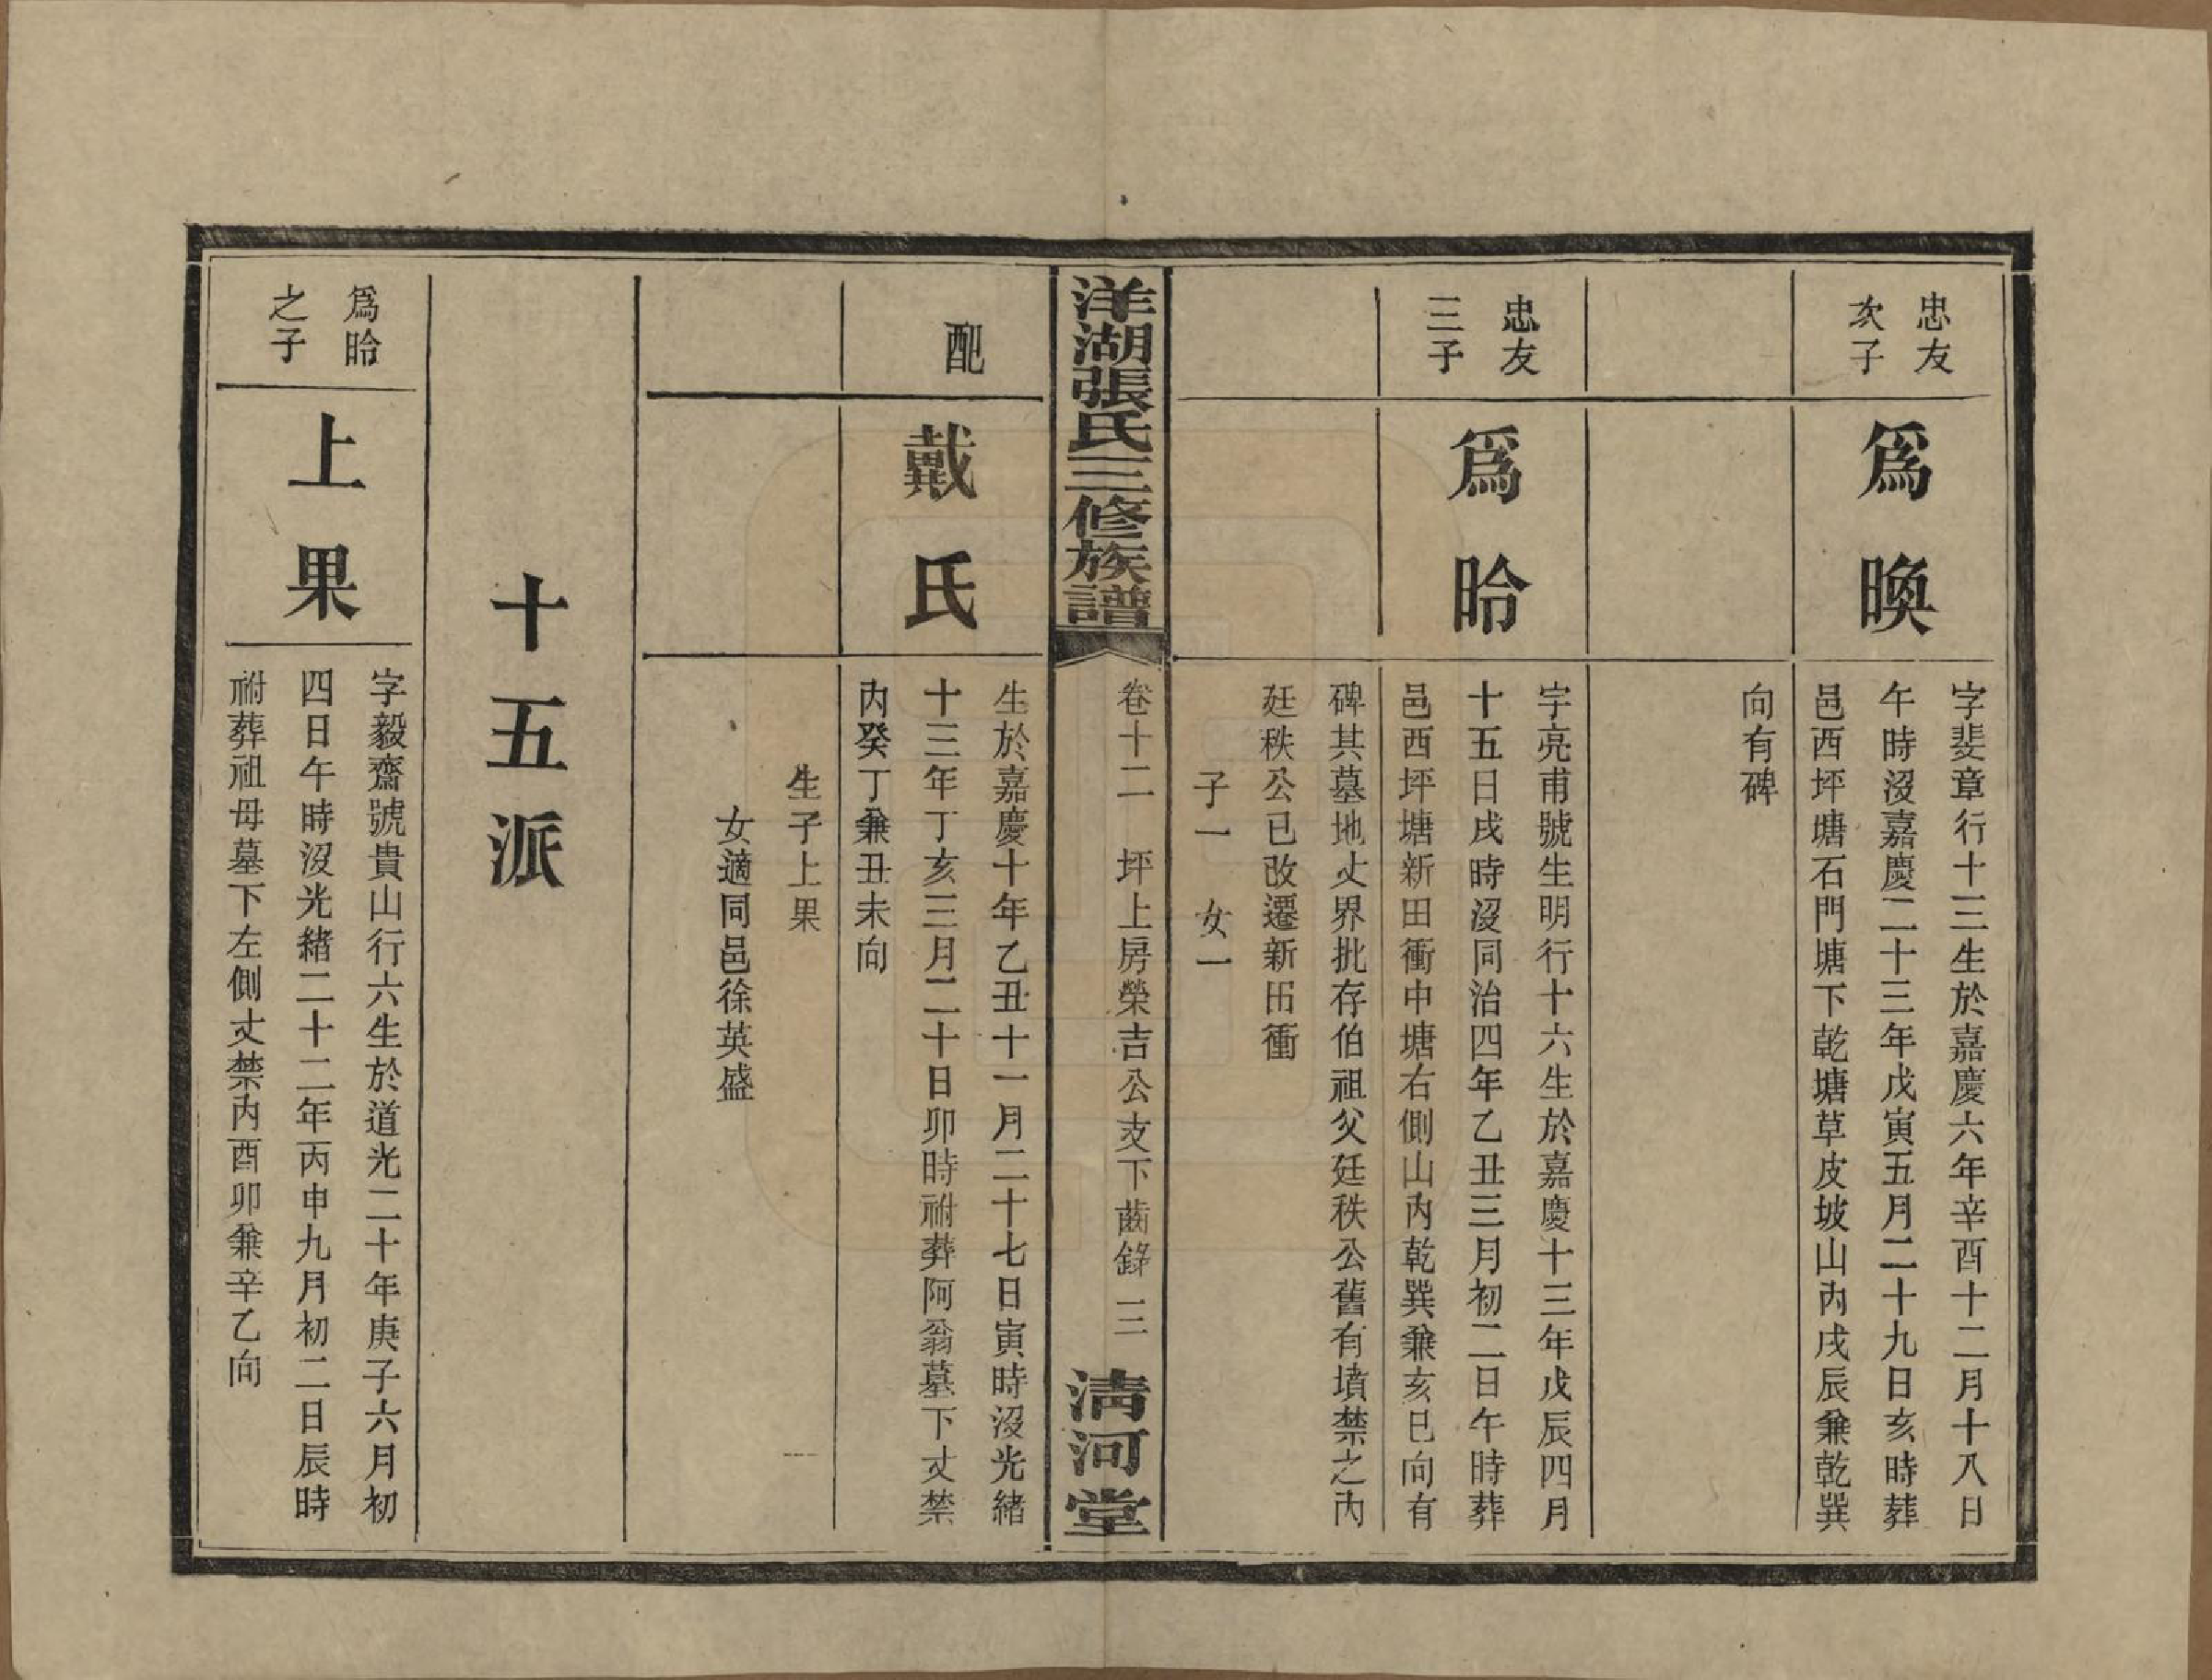 忠友
次子
爲㬇
字斐章行十三生於嘉慶六年辛酉十二月十八日
午時沒嘉慶二十三年戊寅五月二十九日亥時葬
邑西坪塘石門塘下乾塘草皮坡山內戌辰兼乾巽
向有碑
忠友
三子
爲昤
字亮甫號生明行十六生於嘉慶十三年戊辰四月
十五日戌時沒同治四年乙丑三月初二日午時葬
邑西坪塘新田衝中塘右側山內乾巽兼亥巳向有
碑其墓地丈界批存伯祖父廷秩公舊有墳禁之內
廷秩公已改遷新田衝
子一 女一
洋湖張氏三修族譜
卷十二 坪上房榮吉公支下齒錄 三
淸河堂
配
戴氏
生於嘉慶十年乙丑十一月二十七日寅時沒光緒
十三年丁亥三月二十日卯時祔葬阿翁墓下丈禁
內癸丁兼丑未向
生子上果
女適同邑徐英盛
十五派
爲昤
之子
上果
字毅齋號貴山行六生於道光二十年庚子六月初
四日午時沒光緒二十二年丙申九月初二日辰時
祔葬祖母墓下左側丈禁內酉卯兼辛乙向